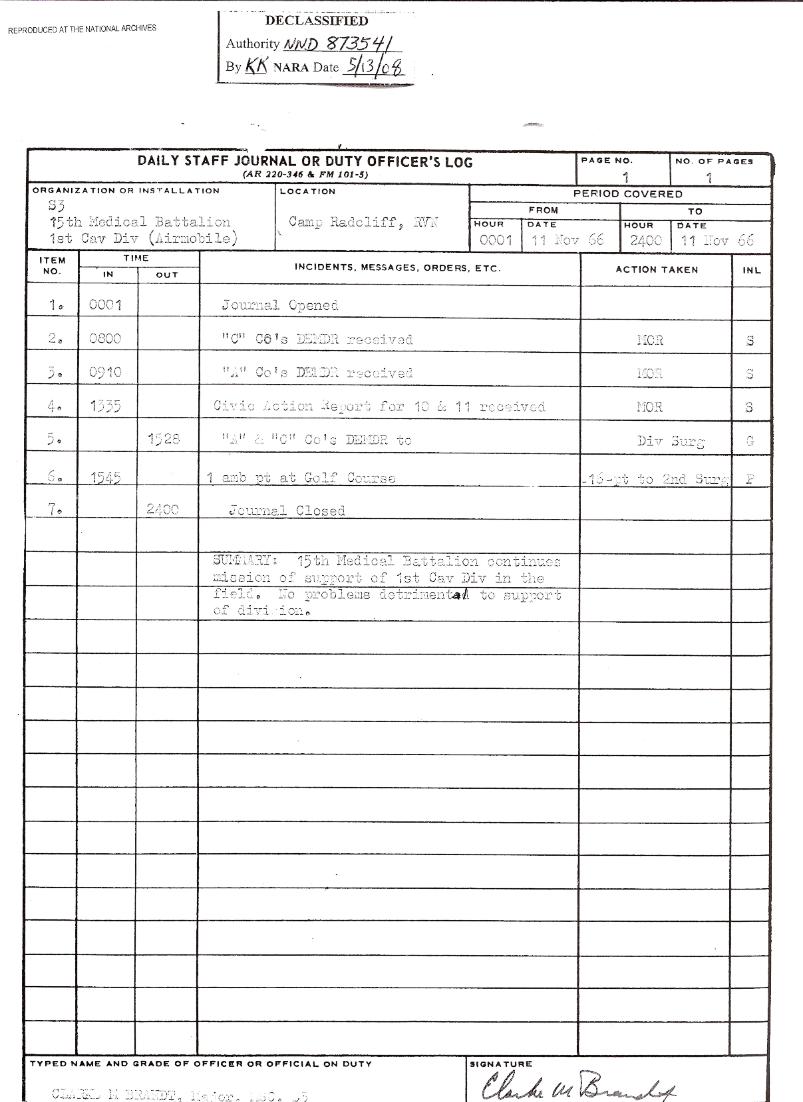 REPRODUCED AT THE NATIONAL ARCHIVES
DECLASSIFIED
Authority NND 873541
By KK NARA Date 5/13/08
DAILY STAFF JOURNAL OR DUTY OFFICER'S LOG
(AR 220-346 & FM 101-5)
PAGE NO.
1
NO. OF PAGES
1
ORGANIZATION OR INSTALLATION
S3
15th Medical Battalion
1st Cav Div (Airmobile)
LOCATION
Camp Radcliff, RVN
PERIOD COVERED
FROM TO
HOUR DATE HOUR DATE
0001 11 Nov 66 2400 11 Nov 66
ITEM NO. TIME INCIDENTS, MESSAGES, ORDERS, ETC. ACTION TAKEN INL
IN OUT
1. 0001 Journal Opened
2. 0800 "C" Co's DEMDR received MOR S
3. 0910 "A" Co's DEMDR received MOR S
4. 1335 Civic Action Report for 10 & 11 received MOR S
5. 1528 "A" & "C" Co's DEMDR to Div Surg G
6. 1545 1 amb pt at Golf Course -pt to 2nd Surg P
7. 2400 Journal Closed
SUMMARY: 15th Medical Battalion continues
mission of support of 1st Cav Div in the
field. No problems detrimental to support
of division.
TYPED NAME AND GRADE OF OFFICER OR OFFICIAL ON DUTY
BRANDT, Major, MSC,
SIGNATURE
Clarke M Brandt